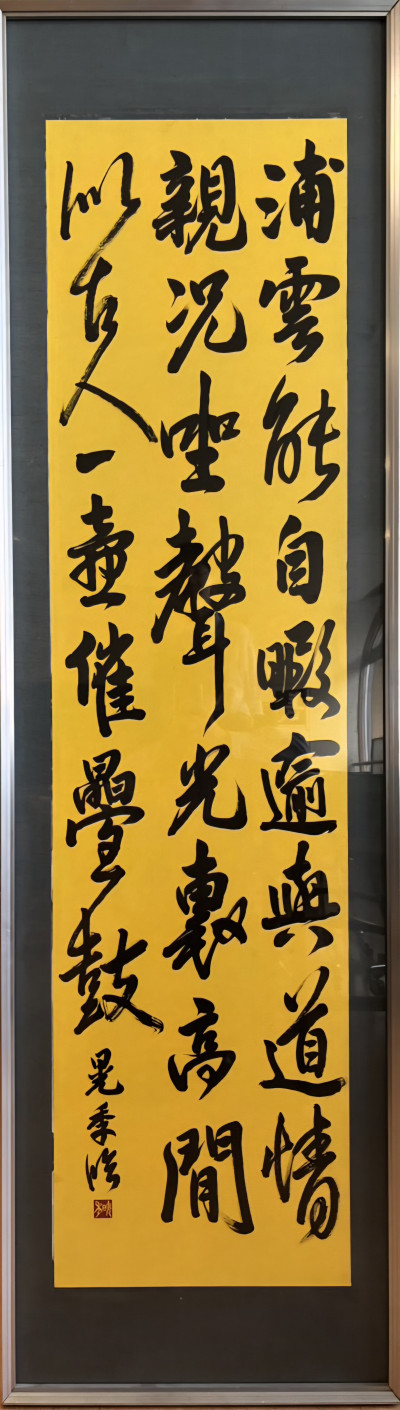 浦雲能自暇適與道情
親況聖聲光裏高閒
似古人一壺催疊鼓
晁季